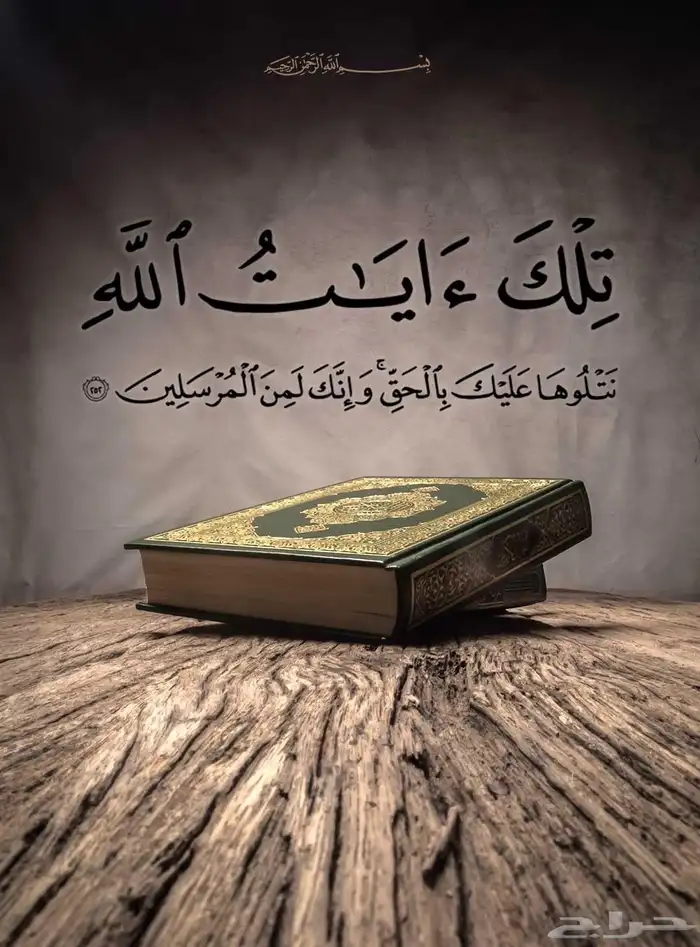 بِسْمِ ٱللَّهِ ٱلرَّحْمَٰنِ ٱلرَّحِيمِ
تِلْكَ ءَايَـٰتُ ٱللَّهِ
نَتْلُوهَا عَلَيْكَ بِٱلْحَقِّ ۚ وَإِنَّكَ لَمِنَ ٱلْمُرْسَلِينَ ٢٥٢
حراج